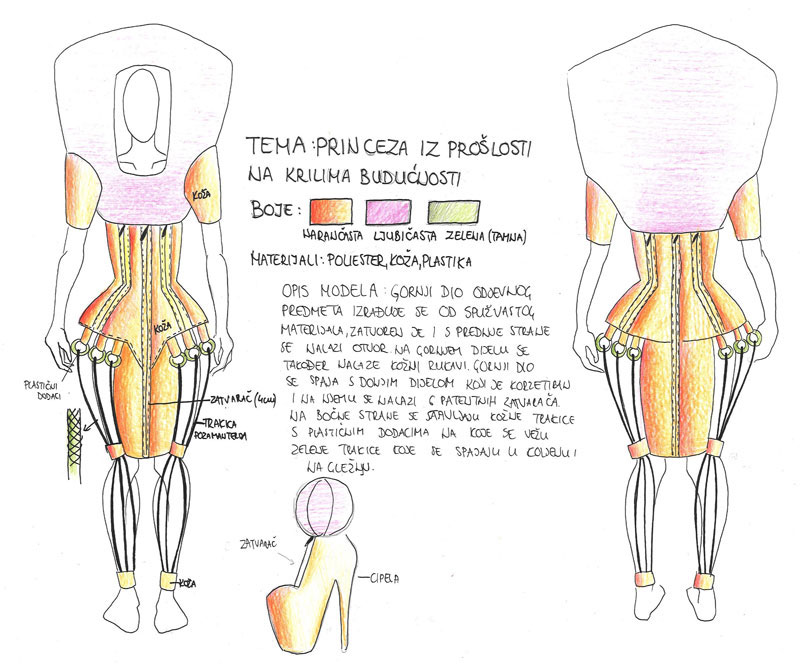 TEMA: PRINCEZA IZ PROŠLOSTI
NA KRILIMA BUDUĆNOSTI
BOJE:
NARANČASTA LJUBIČASTA ZELENA (TAMNA)
MATERIJALI: POLIESTER, KOŽA, PLASTIKA
OPIS MODELA: GORNJI DIO ODJEVNOG
PREDMETA IZRAĐUJE SE OD SPUŽVASTOG
MATERIJALA, ZATVOREN JE I S PREDNJE STRANE
SE NALAZI OTVOR. NA GORNJEM DIJELU SE
TAKOĐER NALAZE KOŽNI RUKAVI. GORNJI DIO
SE SPAJA S DONJIM DIJELOM KOJI JE KORZETIRAN
I NA NJEMU SE NALAZI 6 PATENTNIH ZATVARAČA.
NA BOČNE STRANE SE STAVLJAJU KOŽNE TRAKICE
S PLASTIČNIM DODACIMA NA KOJE SE VEŽU
ZELENE TRAKICE KOJE SE SPAJAJU U KOLJENU I
NA GLEŽNJU.
KOŽA
KOŽA
PLASTIČNI
DODACI
ZATVARAČ (4cm)
TRAKICA
POZAMANTERIJA
KOŽA
ZATVARAČ
CIPELA